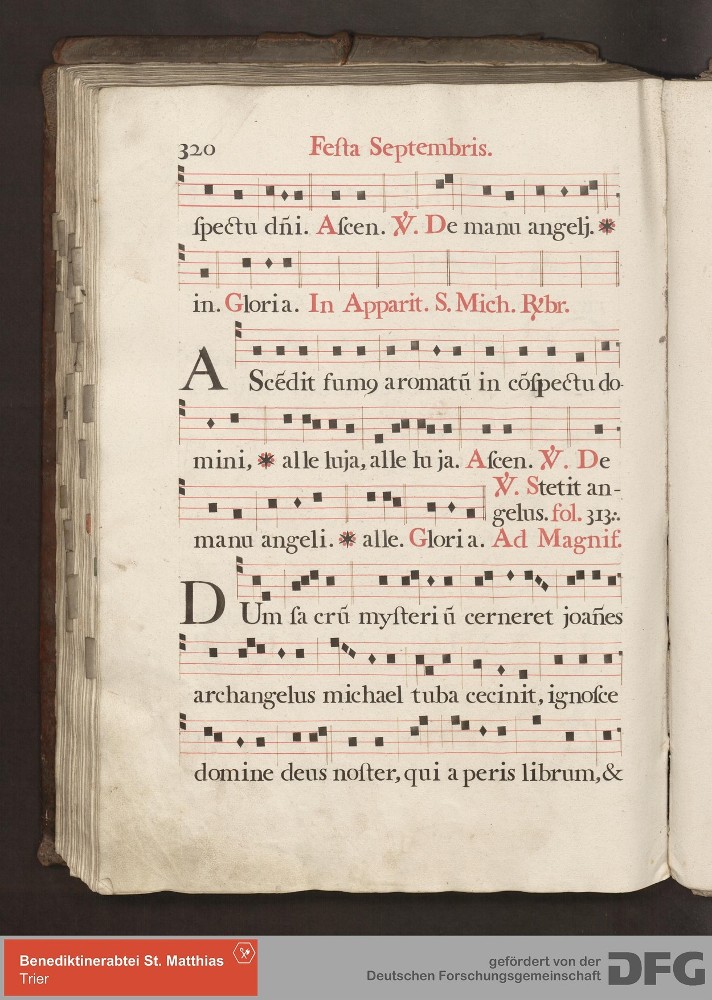 320 Festa Septembris.
spectu dñi. Ascen. ℣. De manu angelj. ✷
in. Gloria. In Apparit. S. Mich. R̷br.
AScẽdit fumꝯ aromatũ in cõspectu do-
mini, ✷ alleluja, alleluja. Ascen. ℣. De
℣. Stetit an-
gelus. fol. 313:.
manu angeli. ✷ alle. Gloria. Ad Magnif.
DUm sacrũ mysteriũ cerneret joañes
archangelus michael tuba cecinit, ignosce
domine deus noster, qui aperis librum, &
Benediktinerabtei St. Matthias
Trier
gefördert von der
Deutschen Forschungsgemeinschaft DFG